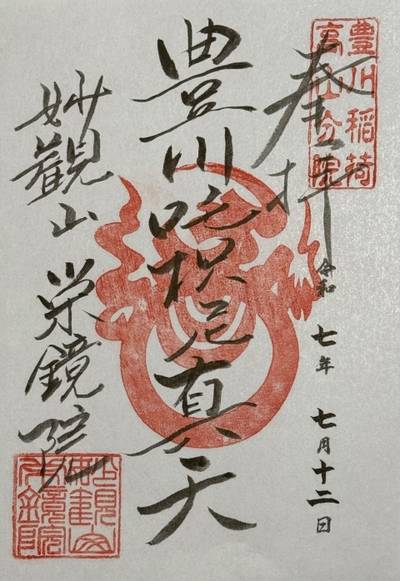 豊川稲荷
高山分院
奉拝
令和七年七月十二日
豊川吒枳尼真天
妙觀山栄鏡院